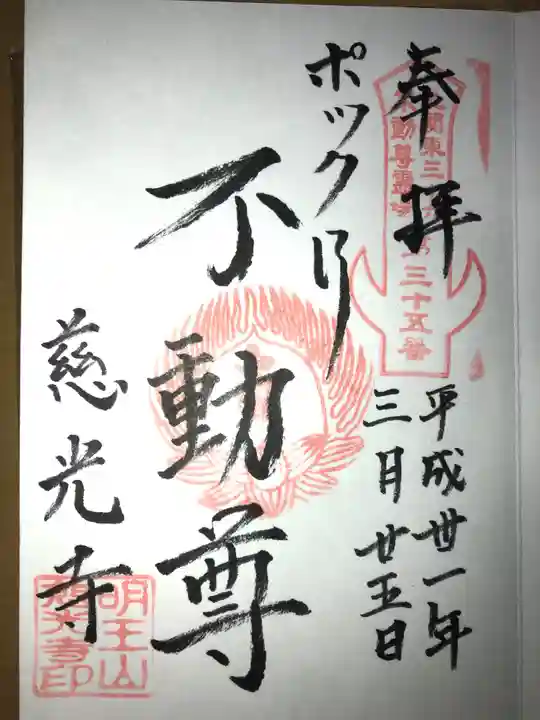 奉拝
関東三
動尊霊場
三十五番
平成丗一年
三月廿五日
ポックリ
不動尊
慈光寺
明王山